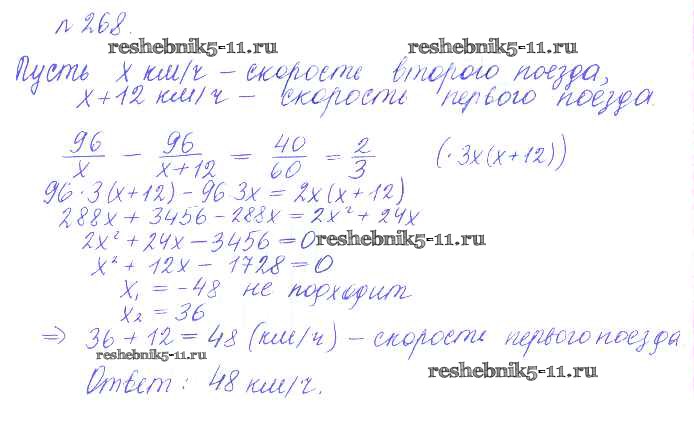 № 268.
reshebnik5-11.ru reshebnik5-11.ru
Пусть x км/ч – скорость второго поезда,
x+12 км/ч – скорость первого поезда.
96/x − 96/(x+12) = 40/60 = 2/3 (·3x(x+12))
96·3(x+12) − 96·3x = 2x(x+12)
288x + 3456 − 288x = 2x² + 24x
2x² + 24x − 3456 = 0 reshebnik5-11.ru
x² + 12x − 1728 = 0
x₁ = −48 не подходит
x₂ = 36
⇒ 36 + 12 = 48 (км/ч) – скорость первого поезда
reshebnik5-11.ru
Ответ: 48 км/ч. reshebnik5-11.ru